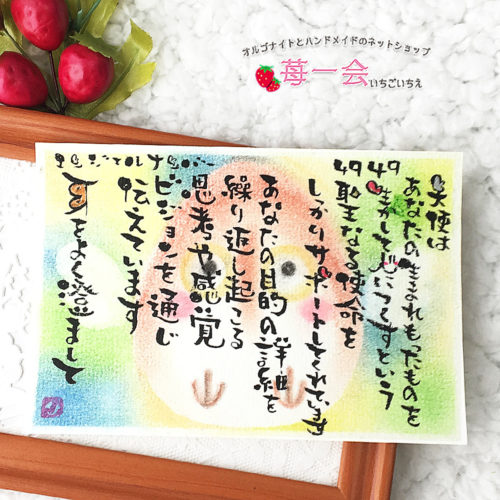 オルゴナイトとハンドメイドのネットショップ
苺一会 いちごいちえ
エンジェルナンバー
49
天使は
あなたの生まれもったものを
生かして心につくすという
49 聖なる使命を
しっかりサポートしてくれてます
あなたの目的の詳細を
繰り返し起こる
思考や感覚
ビジョンを通じ
伝えています
耳をよく澄まして